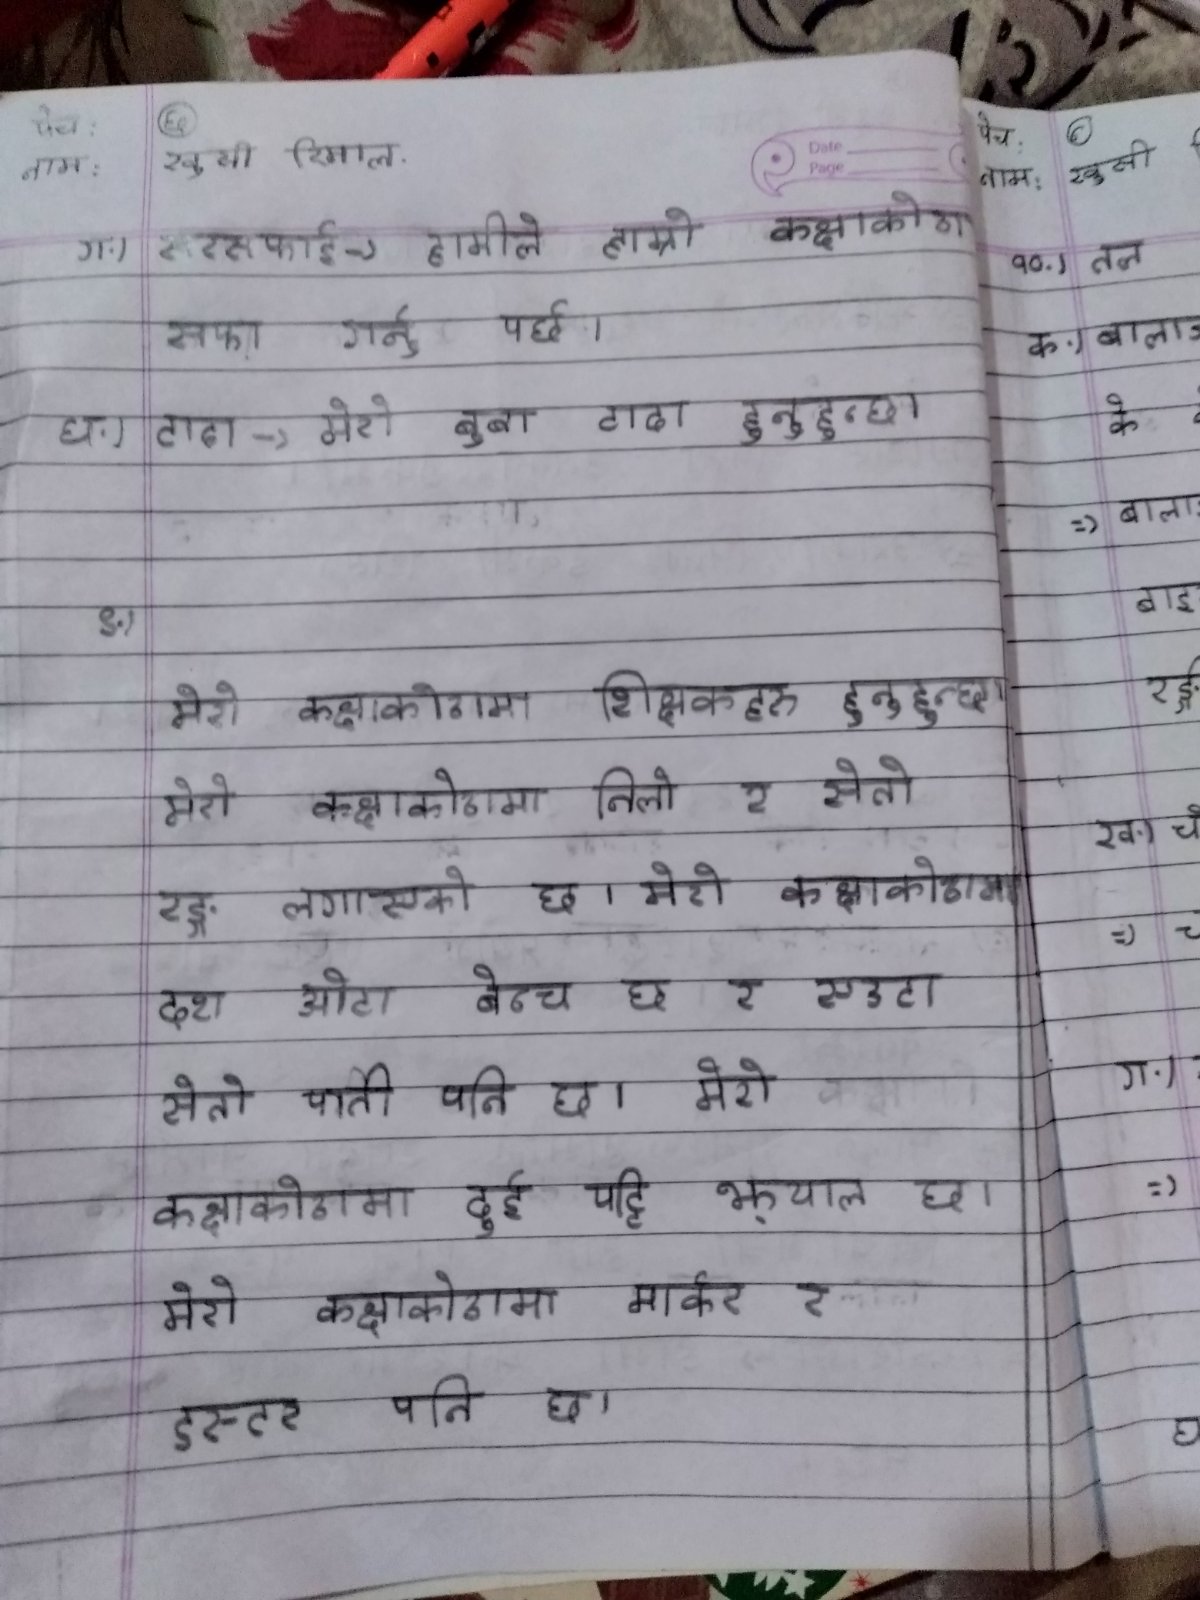 पेच:
नाम: खुसी रिमाल.
Date
Page
ग.) सरसफाई-> हामीले हाम्रो कक्षाकोठा
सफा गर्नु पर्छ।
घ.) टाढा -> मेरो बुबा टाढा हुनुहुन्छ।
९.)
मेरो कक्षाकोठामा शिक्षकहरु हुनुहुन्छ।
मेरो कक्षाकोठामा निलो र सेतो
रङ्ग लगाएको छ। मेरो कक्षाकोठामा
दश ओटा बेन्च छ र एउटा
सेतो पाती पनि छ। मेरो
कक्षाकोठामा दुई पट्टि झ्याल छ।
मेरो कक्षाकोठामा मार्कर र
डस्टर पनि छ।
पेच:
नाम: खुसी
१०.) तल
क.)
के
=>
ख.)
=>
ग.)
=>